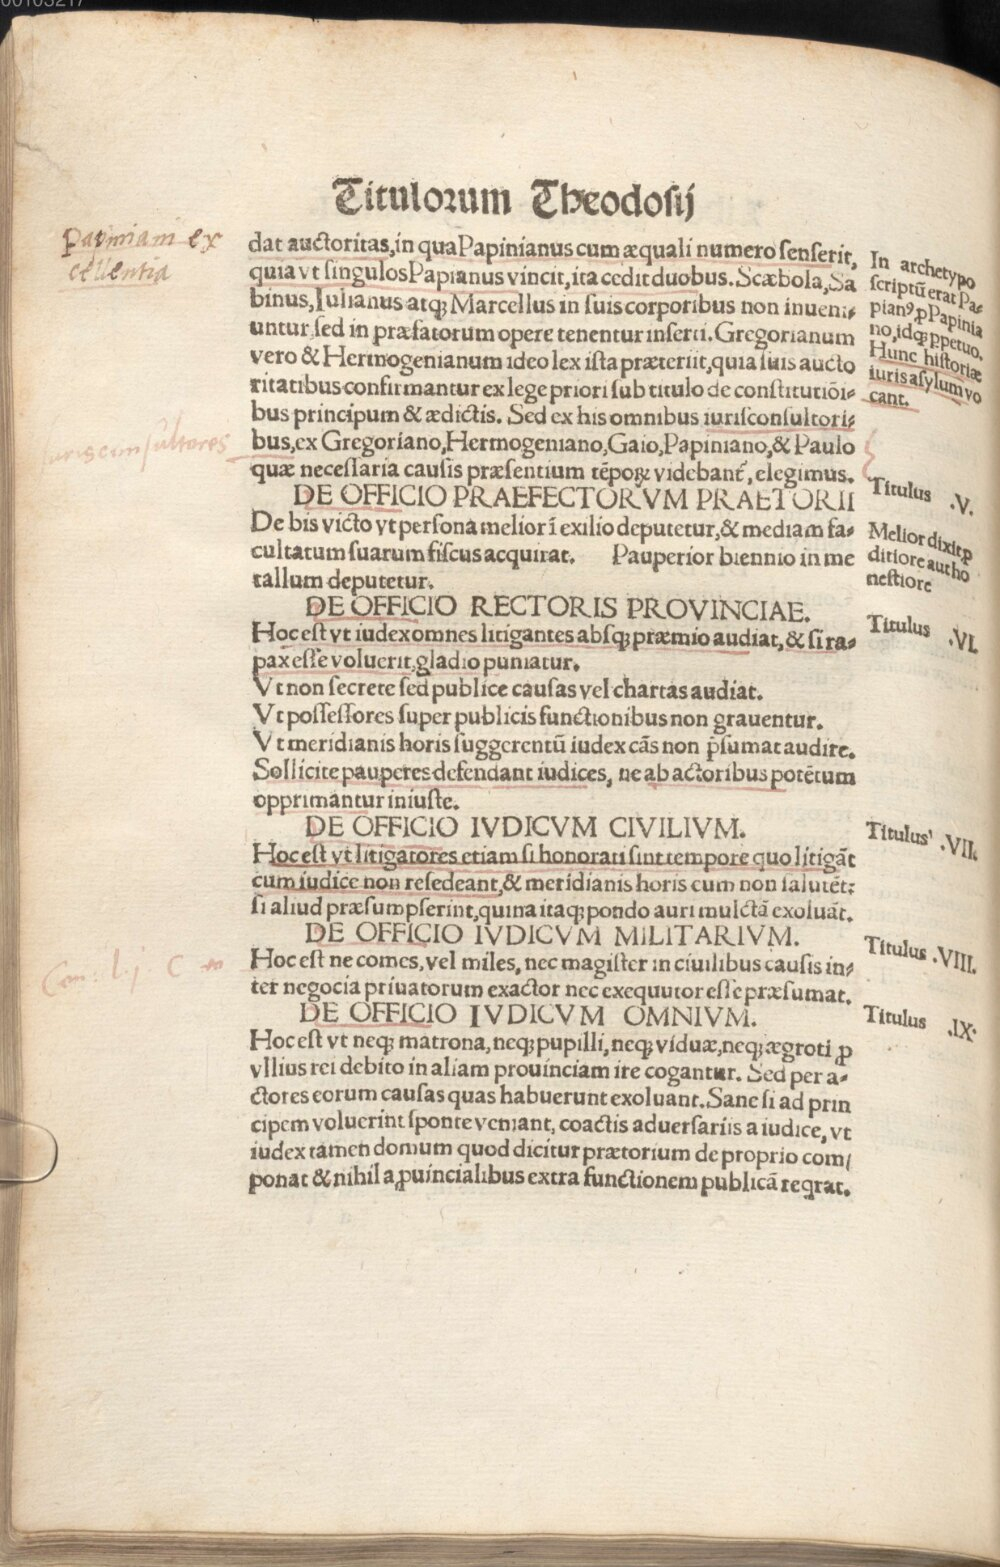 00103217
Titulorum Theodosij
Papiniani ex
cellentia
dat auctoritas,in quaPapinianus cum æquali numero senserit,
quia vt singulosPapianus vincit,ita cedit duobus. Scæbola,Sa
binus,Iulianus atq; Marcellus in suis corporibus non inueni⸗
untur,sed in præfatorum opere tenentur inserti. Gregorianum
vero & Hermogenianum ideo lex ista præteriit,quia suis aucto
ritatibus confirmantur ex lege priori sub titulo de constitutiōi⸗
bus principum & ædictis. Sed ex his omnibus iurisconsultori⸗
bus,ex Gregoriano,Hermogeniano,Gaio,Papiniano,& Paulo
quæ necessaria causis præsentium tēpoꝝ videbant᷑, elegimus.
In archetypo
scriptū erat Pa⸗
pianꝰ,ꝓ Papinia
no,idq; ꝑpetuo,
Hunc historiæ
iuris asylum vo
cant.
iurisconsultores
DE OFFICIO PRAEFECTORVM PRAETORII
Titulus .V.
De bis victo vt persona melior ī exilio deputetur,& mediam fa⸗
cultatum suarum fiscus acquirat. Pauperior biennio in me
tallum deputetur.
Melior dixit ꝓ
ditiore aut ho
nestiore
DE OFFICIO RECTORIS PROVINCIAE.
Titulus .VI.
Hoc est vt iudex omnes litigantes absq; præmio audiat,& si ra⸗
pax esse voluerit,gladio puniatur.
Vt non secrete sed publice causas vel chartas audiat.
Vt possessores super publicis functionibus non grauentur.
Vt meridianis horis suggerentū iudex cās non p̄sumat audire.
Sollicite pauperes defendant iudices, ne ab actoribus potētum
opprimantur iniuste.
DE OFFICIO IVDICVM CIVILIVM.
Titulus .VII.
Hoc est vt litigatores etiam si honorati sint tempore quo litigāt
cum iudice non resedeant,& meridianis horis cum non salutēt:
si aliud præsumpserint,quina itaq; pondo auri mulctā exoluāt.
DE OFFICIO IVDICVM MILITARIVM.
Titulus .VIII.
Hoc est ne comes, vel miles, nec magister in ciuilibus causis in⸗
ter negocia priuatorum exactor nec exequutor esse præsumat.
DE OFFICIO IVDICVM OMNIVM.
Titulus .IX.
Hoc est vt neq; matrona, neq; pupilli, neq; viduæ,neq; ægroti ꝓ
vllius rei debito in aliam prouinciam ire cogantur. Sed per a⸗
ctores eorum causas quas habuerunt exoluant. Sane si ad prin
cipem voluerint sponte veniant, coactis aduersariis a iudice, vt
iudex tamen domum quod dicitur prætorium de proprio com/
ponat & nihil a ꝓuincialibus extra functionem publicā reqrat.